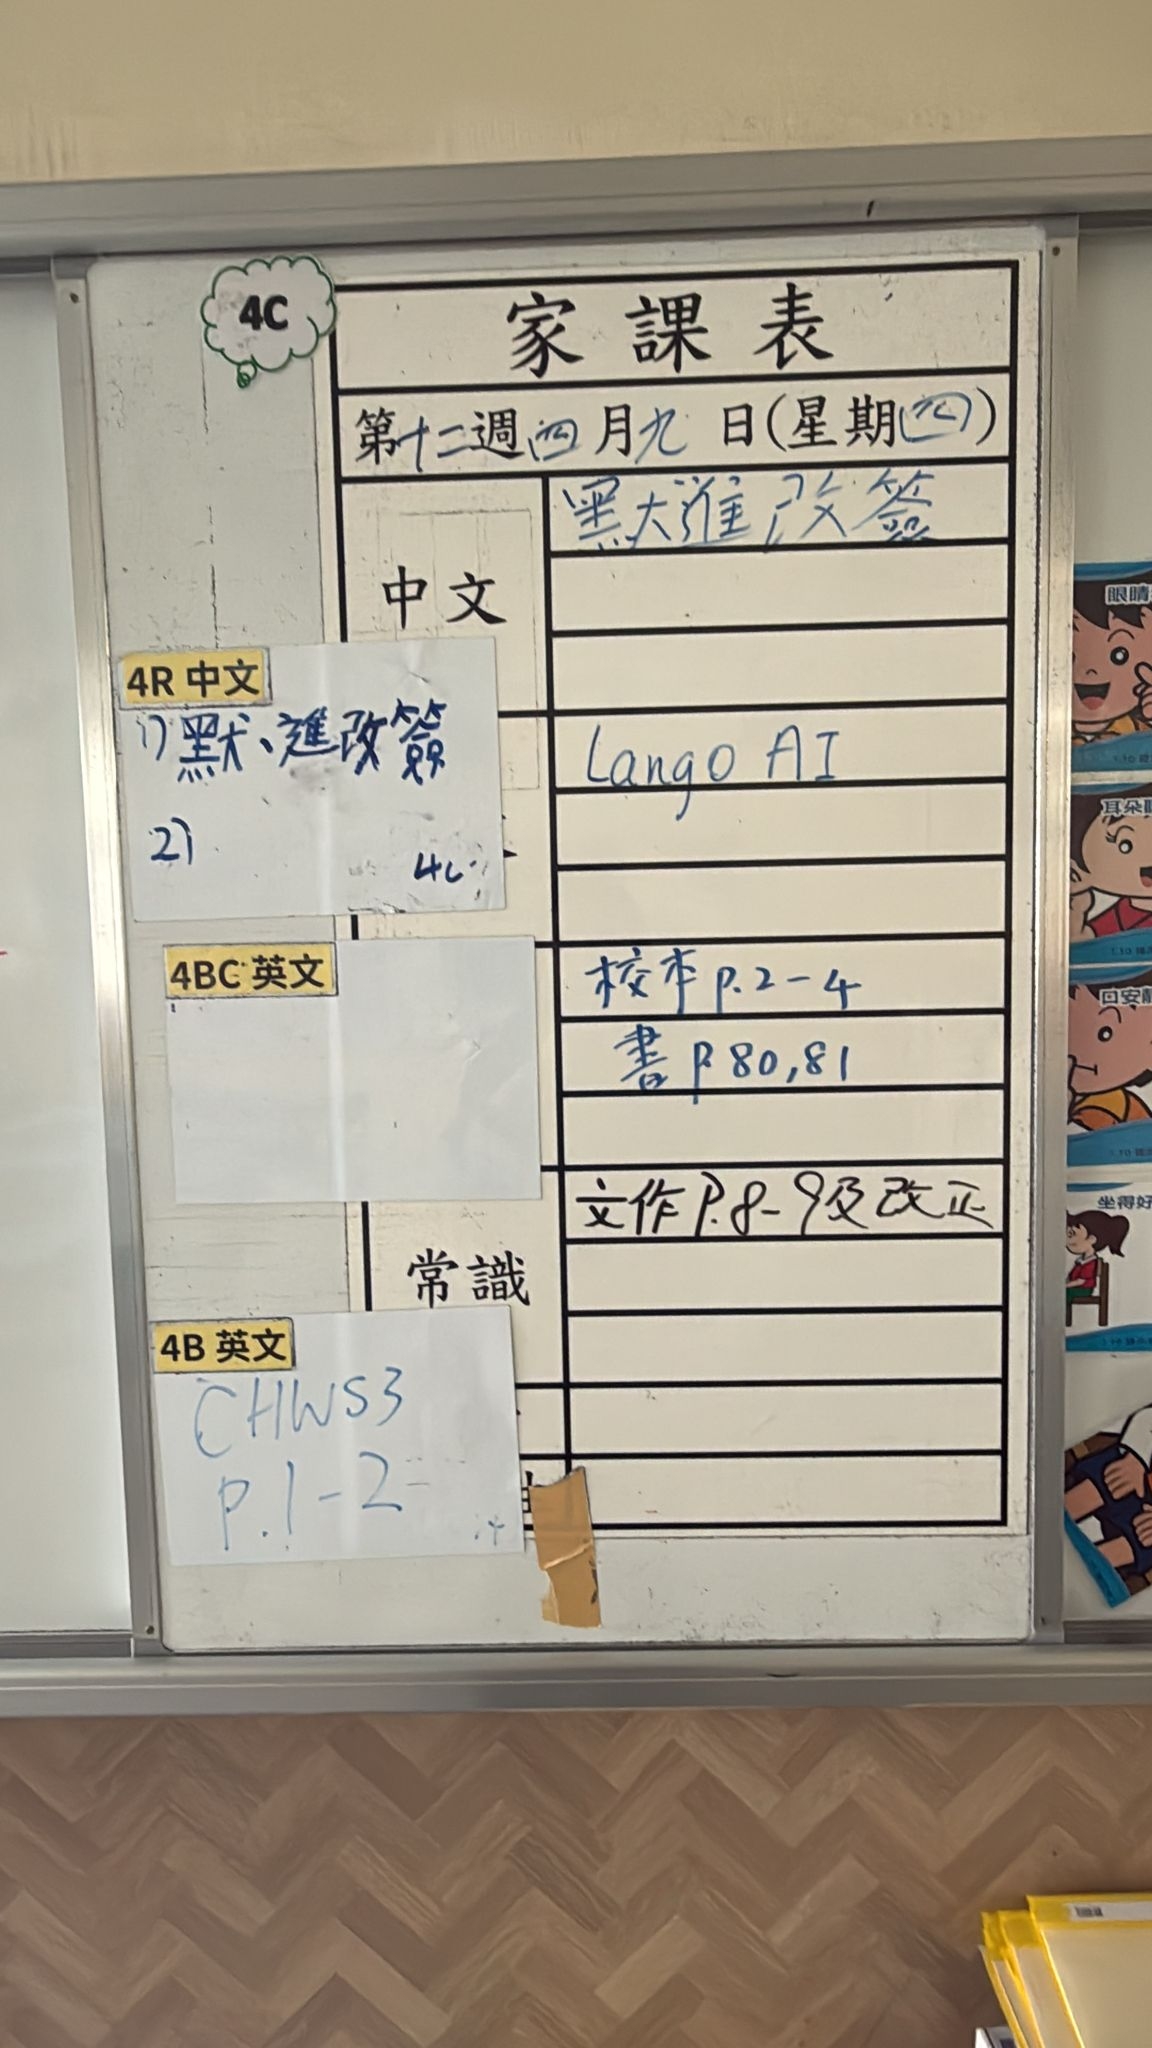 4C
家課表
第十二週四月九日(星期四)
中文
默進改簽
4R 中文
1)默、進改簽
2)
4C
Lango AI
4BC 英文
校本 P.2-4
書 P.80,81
常識
文作 P.8-9及改正
4B 英文
CHWS3
P.1-2
眼睛
耳朵
口安靜
坐得好